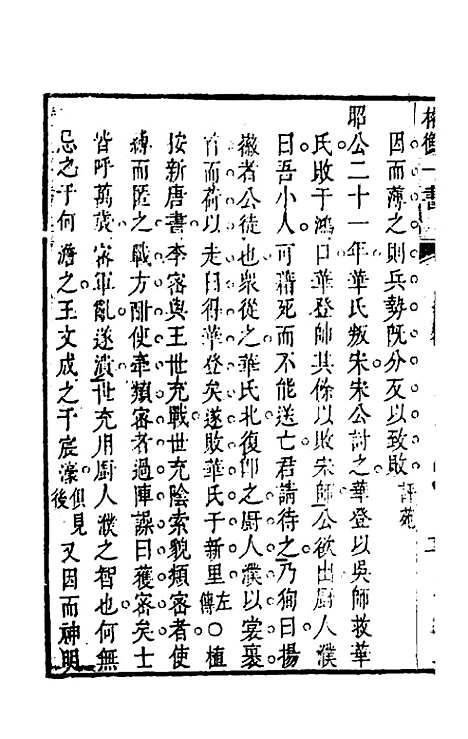 因而薄之則兵勢既分反以致敗評苑
昭公二十一年華氏叛宋宋公討之華登以吳師救華
氏敗于鴻口華登師其餘以敗宋師公欲出廚人濮
曰吾小人可藉死而不能送亡君請待之乃狥曰揚
徽者公徒也衆從之華氏北復卽之廚人濮以裳裹
首而荷以走曰得華登矣遂敗華氏于新里左傳○植
按新唐書李密與王世充戰世充陰索貌類密者使
縛而匿之戰方酣使牽類密者過陣譟曰獲密矣士
皆呼萬歲密軍亂遂潰世充用廚人濮之智也何無
忌之于何澹之王文成之于宸濠俱見後又因而神明